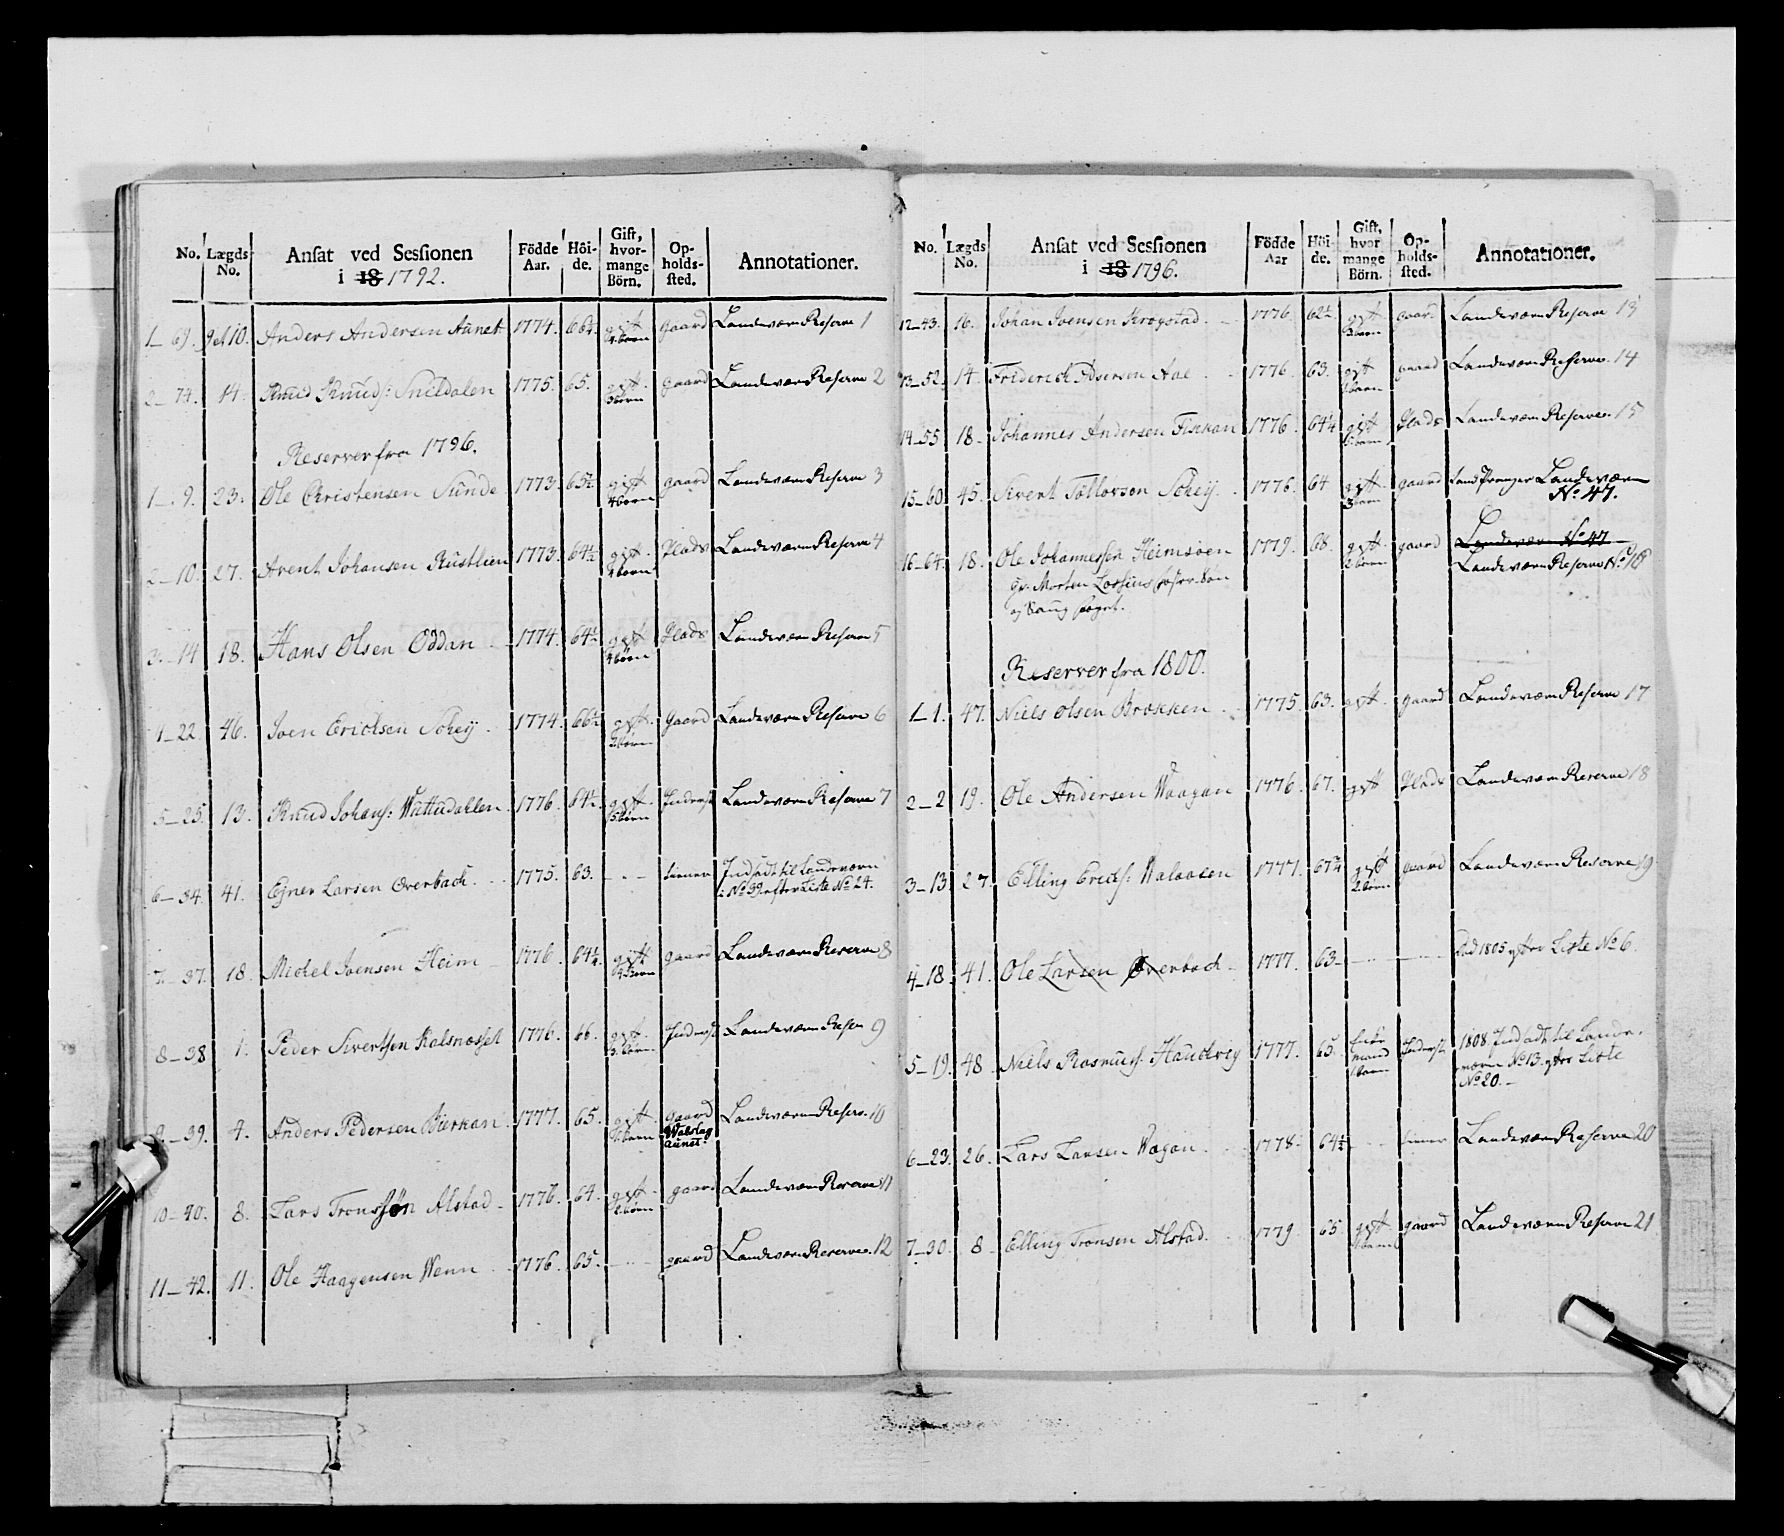 No. Lægds No. Ansat ved Sessionen i 18 1792. Födde Aar. Höi-de. Gift, hvor-mange Börn. Op-holds-sted. Annotationer.
1_ 69. 10. Anders Andersen Aunet 1774. 66¼. gift 4 børn gaard Landeværn Reserve 1
2_ 74. 14. Knud Knuds: Snildalen 1775. 65. gift 3 børn gaard Landeværn Reserve 2
Reserver fra 1796.
1_ 9. 23. Ole Christensen Sunde 1773. 65½. gift 4 børn gaard Landeværn Reserve 3
2_ 10. 27. Arent Johansen Rustlien 1773. 64½ gift 4 børn Plads Landeværn Reserve 4
3_ 14 18. Hans Olsen Oddan 1774. 64½ gift 4 børn Plads Landeværn Reserve 5
4_22. 46. Joen Erichsen Schey 1774. 66½ gift 2 børn Gaard Landeværn Reserve 6
5_25. 13. Knud Johans: Wattudallen 1776. 64½. gift 5 børn Inderst Landeværn Reserve 7
6_34. 41. Ejner Larsen Overbach. 1775. 63. _ _ tiener Indsadt til Landeværn
i No 39. efter Liste No 24.
7_37. 18. Michel Joensen Heim 1776. 64¼. gift 4 børn gaard Landeværn Reserve 8
8_38 1. Peder Sivertsen Kalsnæsset 1776. 66. gift 3 børn Inderst Landeværn Reser 9
9_39. 4. Anders Pedersen Bierkan 1777. 65. gift børn gaard Landeværn Reserv. 10
Walslag
aunet
10_40. 8. Lars Tronssøn Alstad 1776. 64. gift 2 børn gaard Landeværn Reserve 11
11_42. 11. Ole Haagensen Wenn 1776. 65. gaard Landeværn Reserve. 12
No. Lægds No. Ansat ved Sessionen i 18 1796. Födde Aar Höi-de. Gift, hvor mange Börn. Op-holds-sted. Annotationer.
12_43. 16. Johan Joensen Krogstad 1776. 62½. gift 3 børn gaar. Landeværn Reserve 13
13_52. 14. Friderich Adsersen Aae 1776. 63. gift børn gaard Landeværn Reserve. 14
14_55 18. Johannes Andersen Fiskan 1776. 64¼ gift børn Plads Landeværn Reserve. 15
15_60. 45. Sivert Tollovsen Schey 1776. 64 gift 3 børn gaard Landeværn
No 47.
16_64. 18. Ole Johannessen Heimsøen 1779. 68. gift 2 børn gaard Landeværn No 47
gr. Morten Lossius foster Søn Landeværn Reserve No 16
og foged.
Reserver fra 1800.
1_1. 47. Niels Olsen Brækken 1775. 63. gift gaard Landeværn Reserve 17
2_2 19. Ole Andersen Waagan 1776. 67. gift Plads Landeværn Reserve 18
3_13. 27. Elling Erichs: Walaasen 1777. 67¼ gift 2 børn gaard Landeværn Reserve 19
4_18. 41. Ole Larsen Øverbach 1777. 63 Død 1805 efter Liste No 6.
5_19. 48 Niels Rasmus: Hautevig 1777. 65. Enke mand 1 børn Inderst 1808 Indsadt til Lande-
værn No 13. efter Liste
No 20.
6_23. 26. Lars Larsen Wagan 1778. 64½ tiener Landeværn Reserve 20
7_30. 8 Elling Tronsen Alstad 1779. 65 gift 1 børn gaard Landeværn Reserve 21